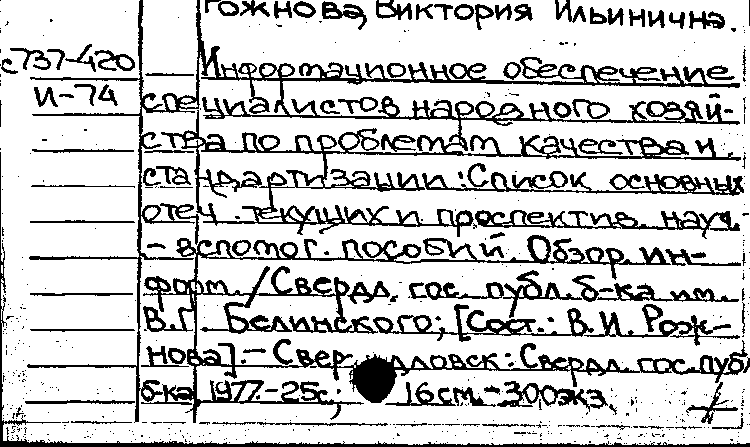 Рожнова, Виктория Ильинична.
с737-420 Информационное обеспечение
И-74 специалистов народного хозяй-
ства по проблемам качества и
стандартизации: Список основных
отеч. текущих и проспектив. науч.-
- вспомог. пособий. Обзор. ин-
форм. / Свердл. гос. публ. б-ка им.
В.Г. Белинского; [Сост.: В.И. Рож-
нова]. - Свердловск: Свердл. гос. публ
б-ка, 1977. - 25с.; 16см. - 300экз.